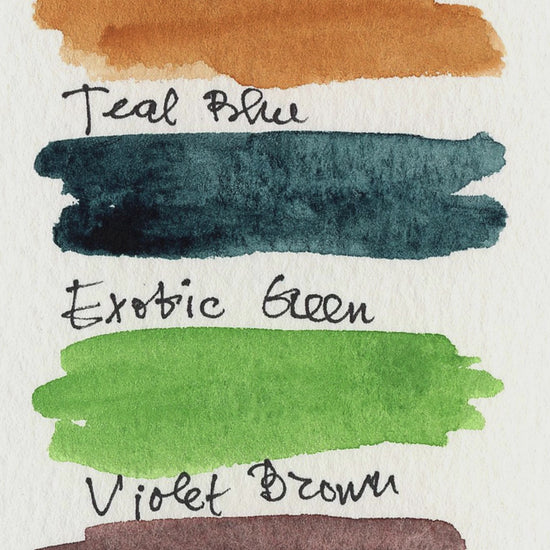 Teal Blue
Exotic Green
Violet Brown